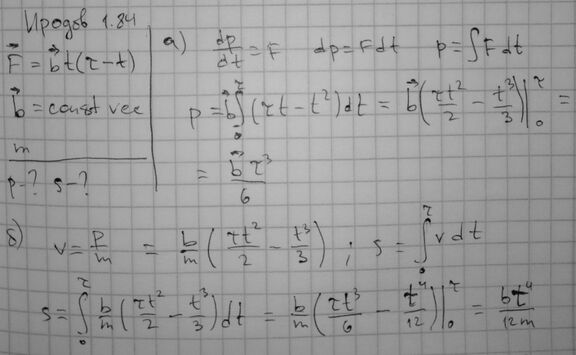 Иродов 1.84
F⃗ = b⃗t(τ-t)
b⃗ = const vec
m
p-? s-?
а) dp/dt = F dp = Fdt p = ∫F dt
p = b⃗ ∫₀^τ (τt - t²)dt = b⃗(τt²/2 - t³/3)|₀^τ =
= b⃗τ³/6
б) v = p/m = b/m (τt²/2 - t³/3) ; s = ∫₀^τ v dt
s = ∫₀^τ b/m (τt²/2 - t³/3)dt = b/m (τt³/6 - t⁴/12)|₀^τ = bt⁴/12m